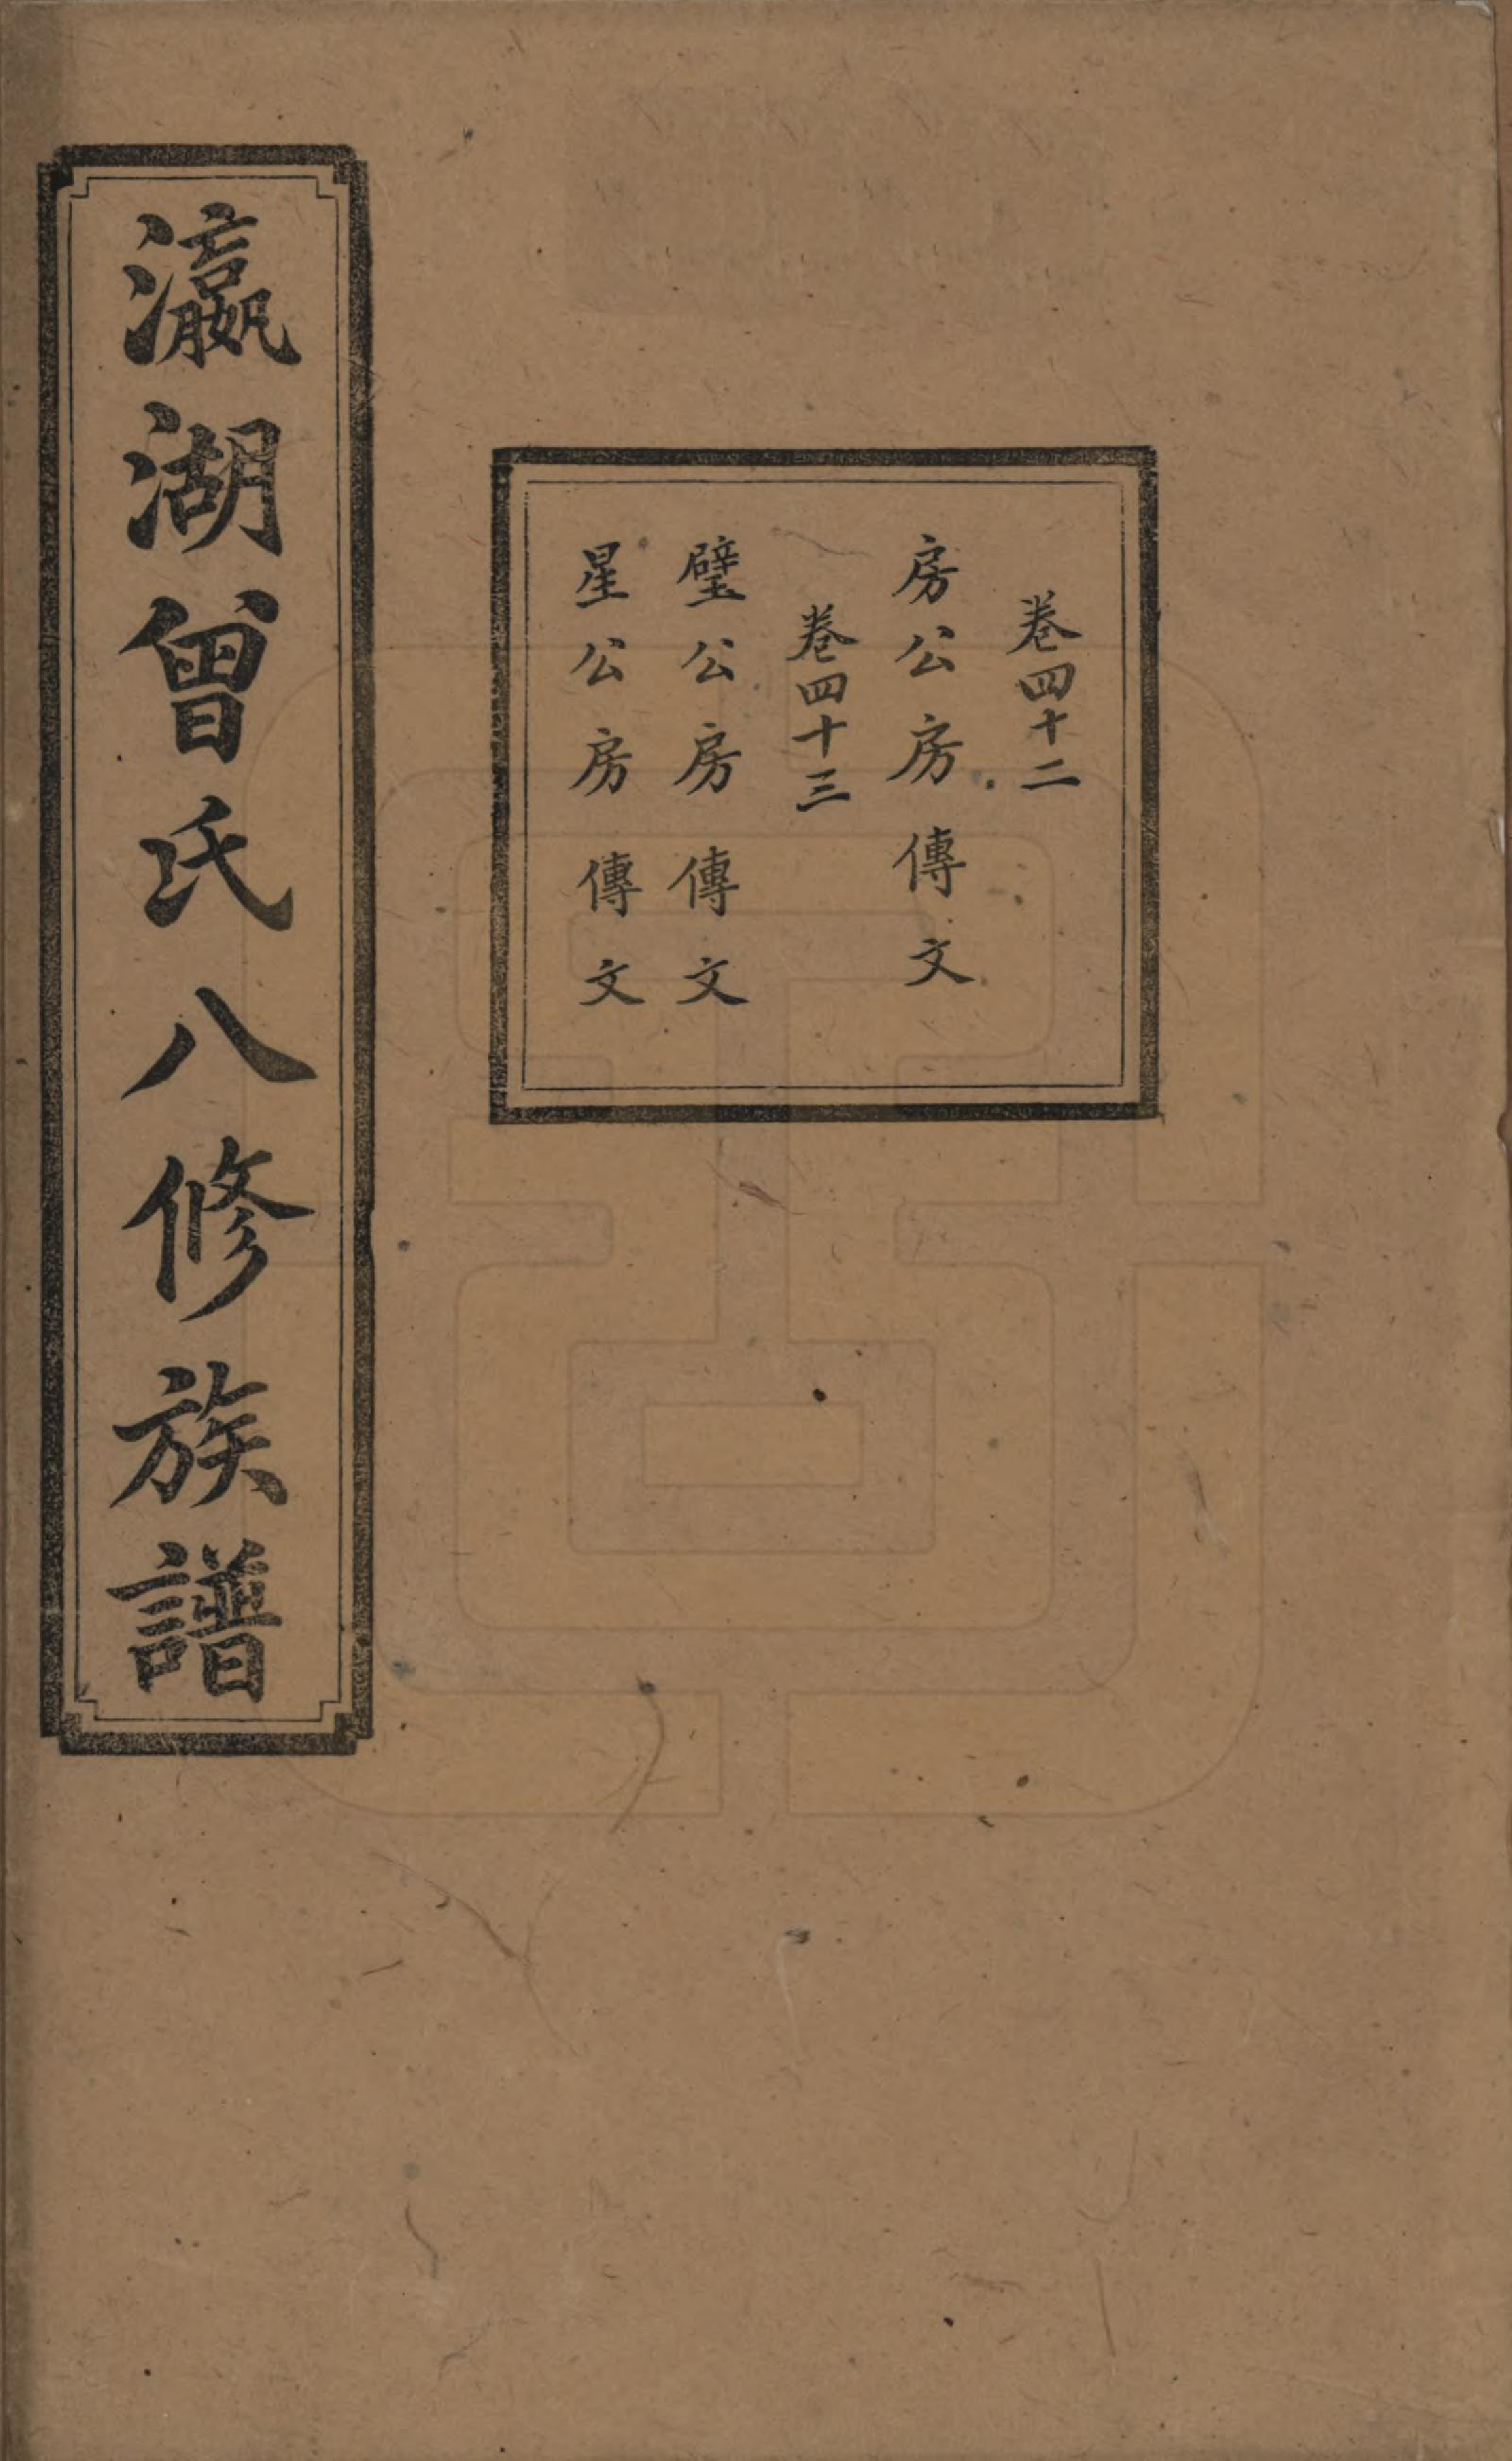 卷四十二
房公房傳文
卷四十三
璧公房傳文
星公房傳文
瀛湖曾氏八修族譜